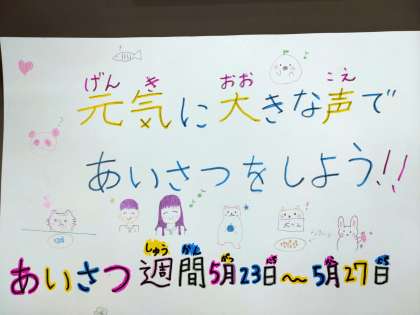 げん き おお こえ
元気に大きな声で
あいさつをしよう!!
しゅう かん がつ にち がつ にち
あいさつ週間5月23日～5月27日